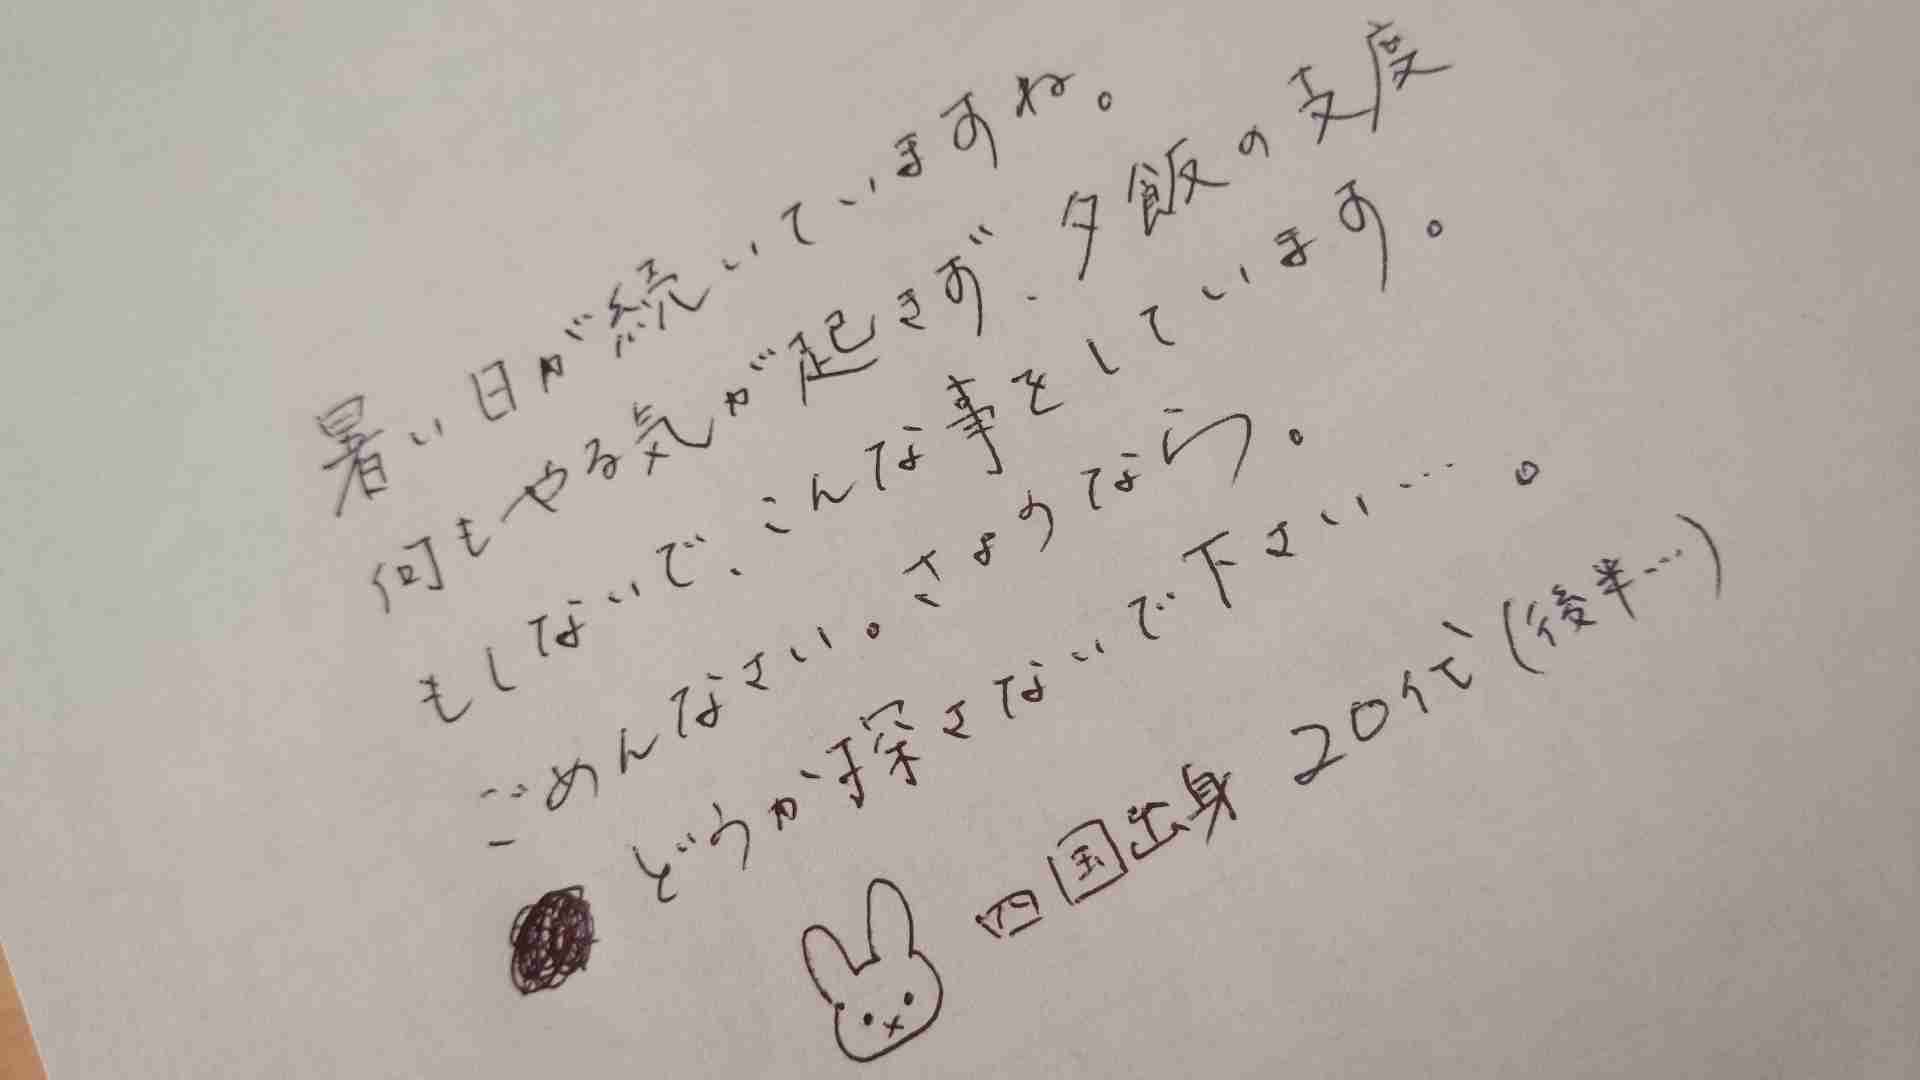 暑い日が続いていますね。
何もやる気が起きず、夕飯の支度
もしないで、こんな事をしています。
ごめんなさい。さようなら。
どうか探さないで下さい…。
四国出身 20代(後半…)